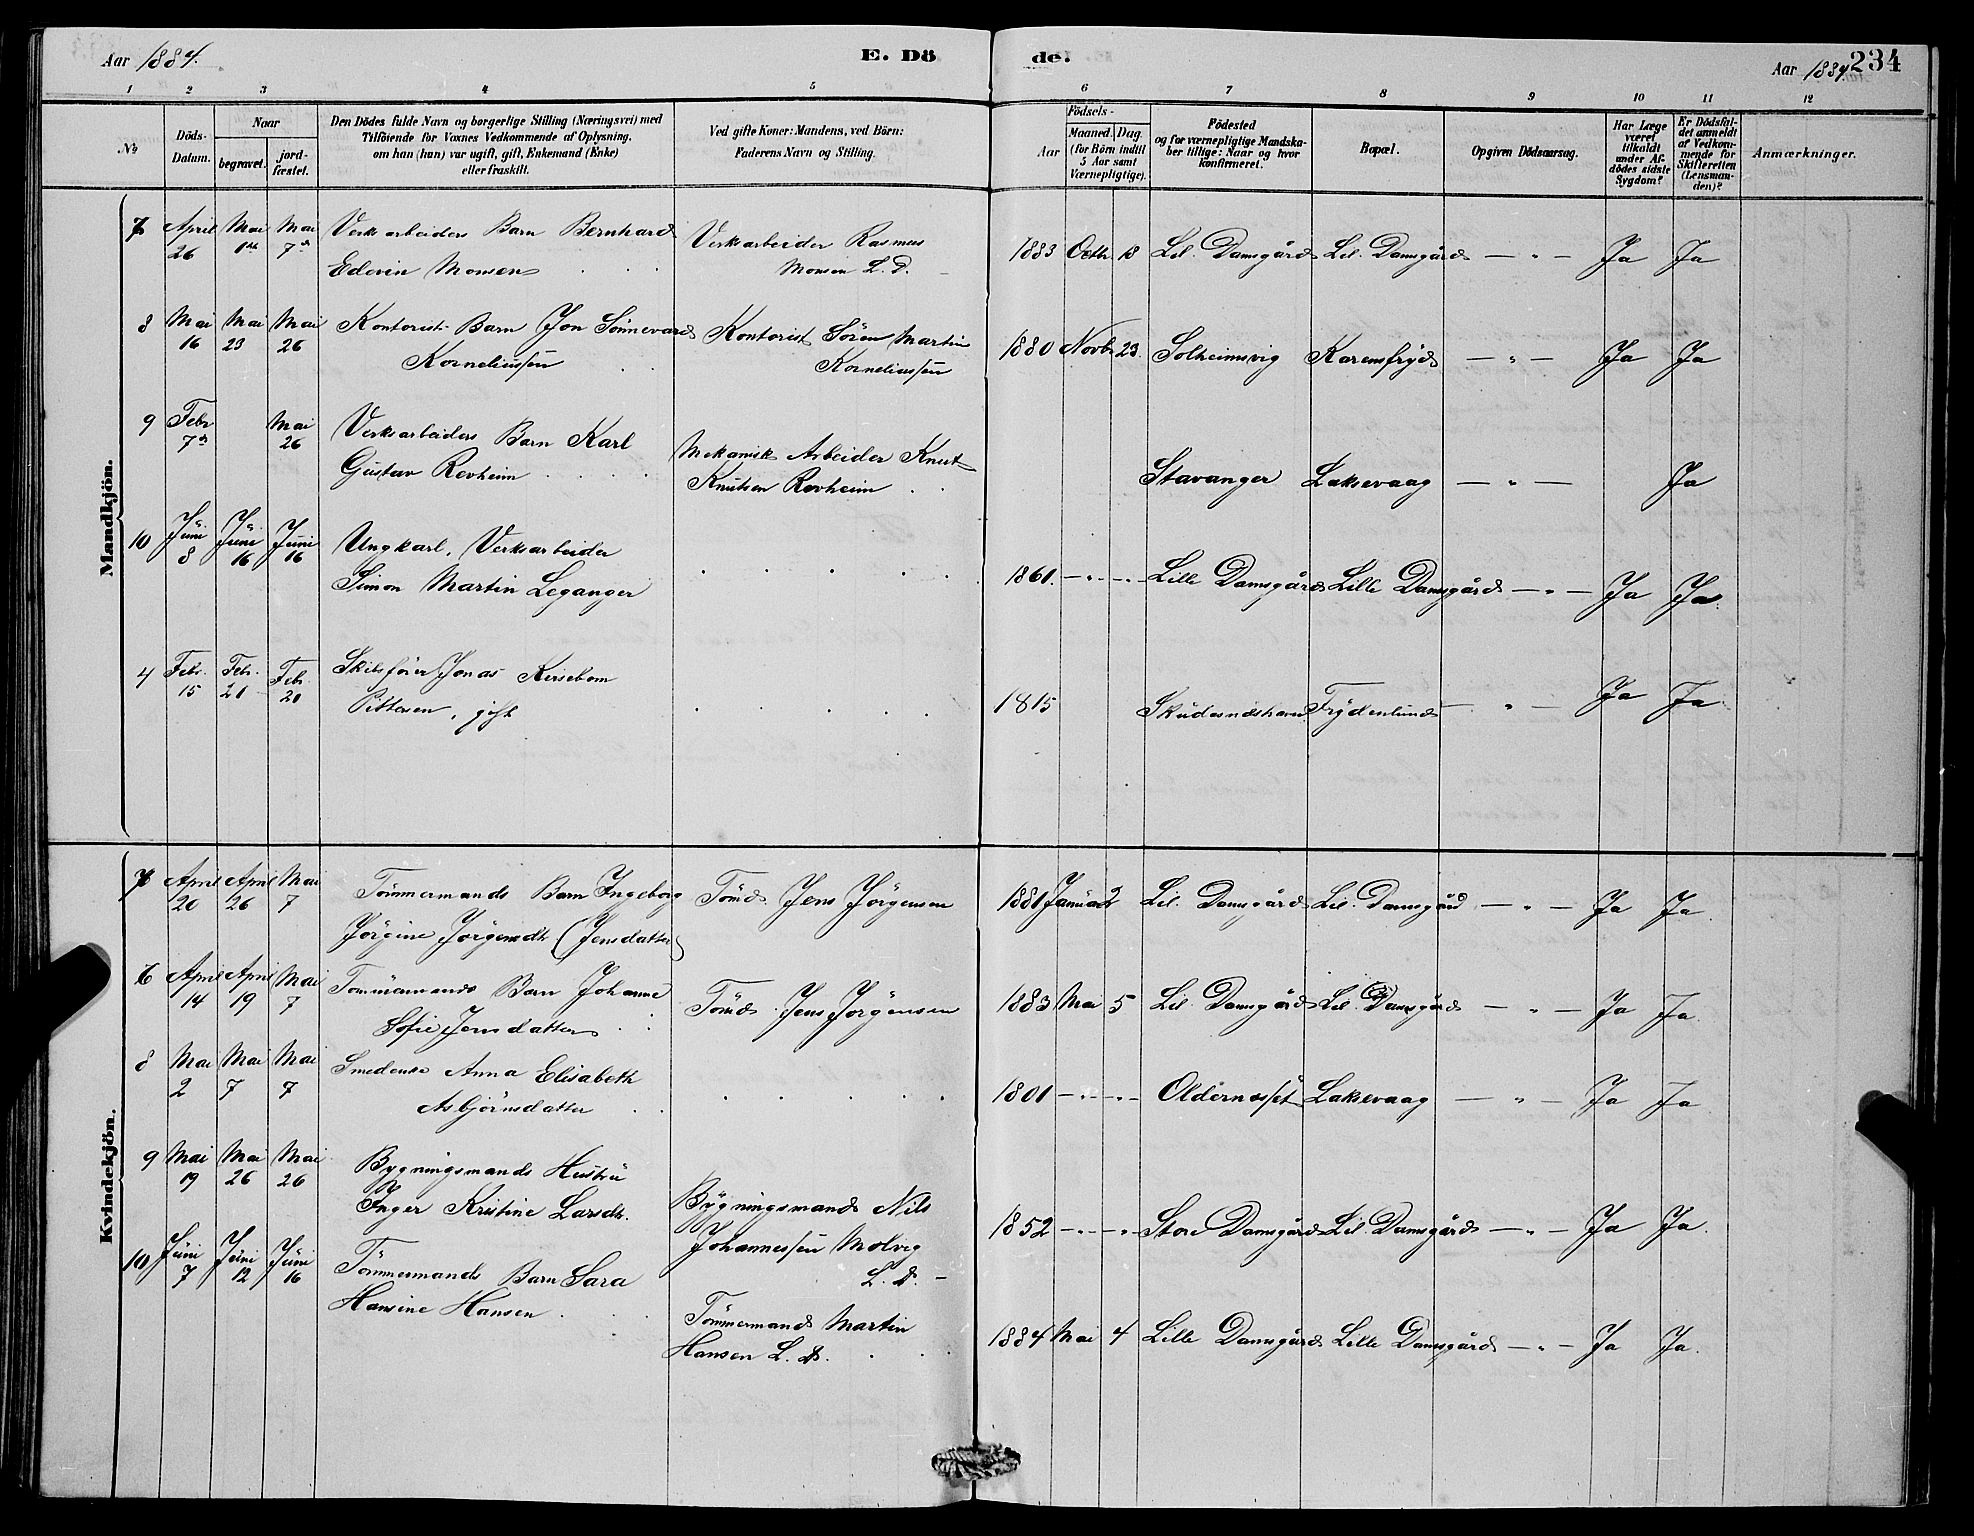 Aar 1884.
E. Dö
de.
Aar 1884.
234
1 2 3 4 5 6 7 8 9 10 11 12
№
Döds-
Datum.
Naar
begravet.
jord-
fæstet.
Den Dödes fulde Navn og borgerlige Stilling (Næringsvei) med
Tilföiende for Voxnes Vedkommende af Oplysning,
om han (hun) var ugift, gift, Enkemand (Enke)
eller fraskilt.
Ved gifte Koner: Mandens, ved Börn:
Faderens Navn og Stilling.
Födsels-
Aar
Maaned.
Dag.
(for Börn indtil
5 Aar samt
Værnepligtige).
Födested
og for værnepligtige Mandska-
ber tillige: Naar og hvor
konfirmeret.
Bopæl.
Opgiven Dödsaarsag.
Har Læge
været
tilkaldt
under Af-
dödes sidste
Sygdom?
Er Dödsfal-
det anmeldt
af Vedkom-
mende for
Skifteretten
(Lensman-
den)?
Anmærkninger.
Mandkjön.
7 April 26 Mai 1ste Mai 7de Verksarbeiders Barn Bernhard
Edvin Monsen
Verksarbeider Rasmus
Monsen L. D. –
1883 Octb. 18 Lil. Damsgård Lil. Damsgård — „ — Ja Ja
8 Mai 16 Mai 23 Mai 26 Kontorist Barn Jon Sönnevard
Korneliussen
Kontorist Sören Martin
Korneliussen
1880 Novbr 23. Solheimsvig Karensfryd — „ — Ja Ja
9 Febr 7de Mai 26 Verksarbeiders Barn Karl
Gustav Revheim
Mekanisk Arbeider Knut
Knutsen Revheim
Stavanger Laksevaag — „ — Ja
10 Juni 8 Juni 16 Juni 16 Ungkarl, Verksarbeider
Simon Martin Leganger
1861. — „ — „ — Lille Damsgård Lille Damsgård — „ — Ja Ja.
4 Febr. 15 Febr. 20 Febr. 20 Skibsförer Jonas Kirsebom
Pettersen, gift
1815 Skudesneshavn Frydenlund — „ — Ja Ja
Kvindekjön.
7 April 20 April 26 Mai 7 Tömmermands Barn Ingeborg
Jörgine Jörgensdt. (Jensdatter)
Tömd. Jens Jörgensen
1881 Januar 2 Lil. Damsgård Lil. Damsgård — „ — Ja Ja.
6 April 14 April 19 Mai 7 Tömmermands Barn Johanne
Sofie Jensdatter
Tömd. Jens Jörgensen
1883 Mai 5 Lil. Damsgård Lil. Damsgård — „ — Ja Ja.
8 Mai 2 Mai 7 Mai 7 Smedenke Anna Elisabeth
Asbjörnsdatter
1801 — „ — „ — Laksevaag — „ — Ja Ja
9 Mai 19 Mai 26 Mai 26 Bygningsmands Hustru
Inger Kristine Larsdt.
Bygningsmand Nils
Johannessen Molvig
L. D. –
1852 — „ — „ Store Damsgård Lil. Damsgård — „ — Ja Ja.
10 Juni 7 Juni 12 Juni 16 Tömmermands Barn Sara
Hansine Hansen
Tömmermand Martin
Hansen L. D.
1884 Mai 4 Lille Damsgård Lille Damsgård — „ — Ja Ja.